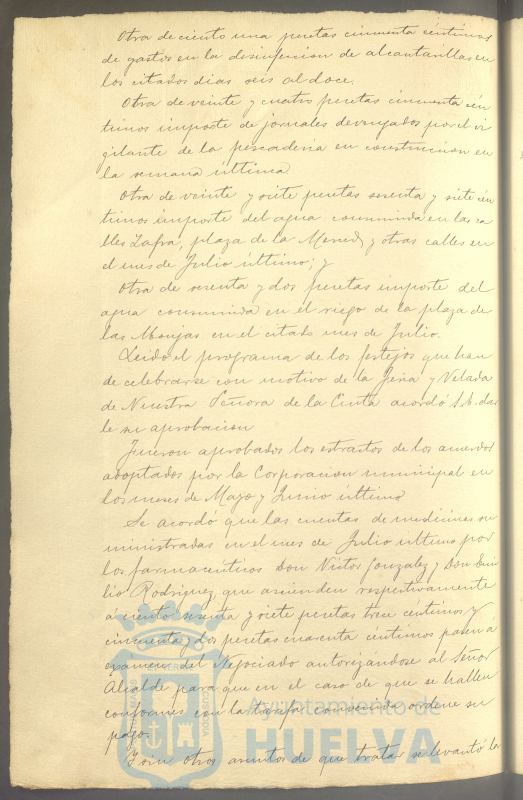 Otra de ciento una pesetas cincuenta céntimos
de gastos en la desinfeccion de alcantarillas en
los citados dias seis al doce.
Otra de veinte y cuatro pesetas cincuenta cén
timos importe de jornales devengados por el vi
gilante de la pescaderia en construccion en
la semana última
Otra de veinte y siete pesetas sesenta y siete cén
timos importe del agua consumida en las ca
lles Zafra, plaza de la Merced y otras calles en
el mes de Julio último; y
Otra de sesenta y dos pesetas importe del
agua consumida en el riego de la plaza de
las Monjas en el citado mes de Julio.
Leido el programa de los festejos que han
de celebrarse con motivo de la Feria y Velada
de Nuestra Señora de la Cinta acordó S.E. dar
le su aprobacion
Fueron aprobados los extractos de los acuerdos
adoptados por la Corporacion municipal en
los meses de Mayo y Junio último
Se acordó que las cuentas de medicinas su
ministradas en el mes de Julio ultimo por
los farmacéuticos Don Victor Gonzalez y Don Emi
lio Rodriguez que ascienden respectivamente
á ciento sesenta y siete pesetas trece céntimos y
cincuenta y dos pesetas cuarenta céntimos pasen á
examen del Negociado autorizándose al Señor
Alcalde para que en el caso de que se hallen
conformes con la tarifa convenida ordene su
pago.
Y sin otros asuntos de que tratar se levantó la
Ayuntamiento de
HUELVA